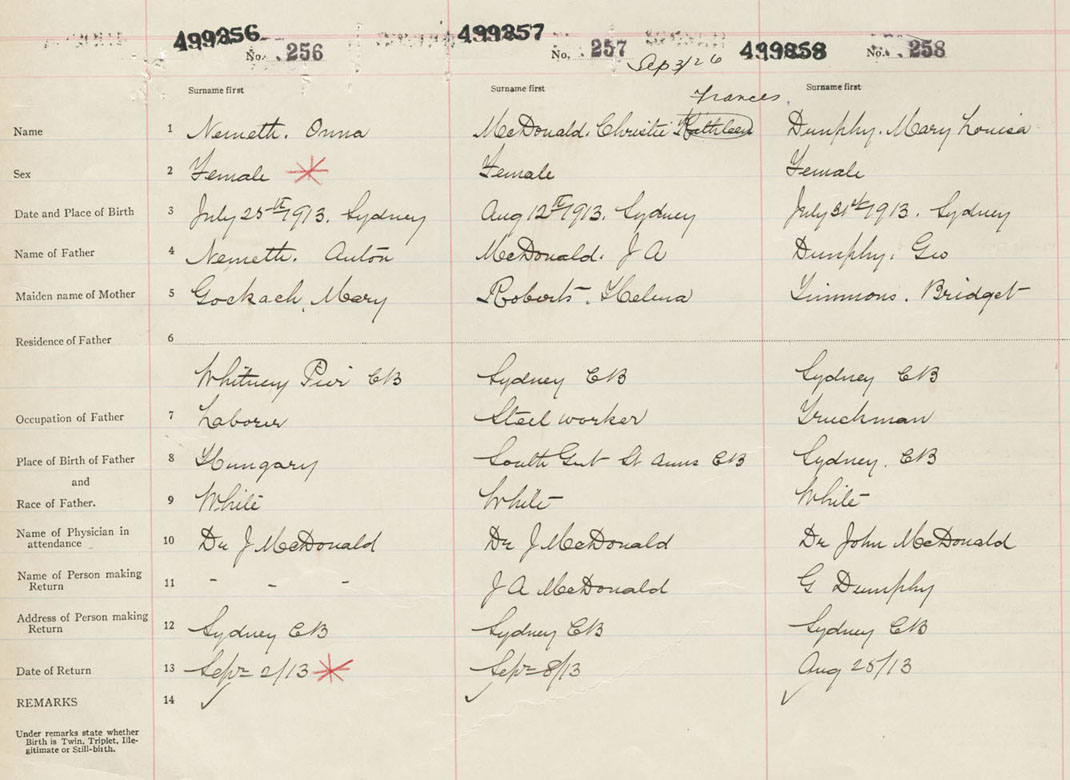 499256 499257 499258
No. 256 No. 257 No. 258
Sep 3/26
Surname first Surname first Surname first
Frances
Name 1 Nemeth. Onna McDonald. Christie Kathleen Dunphy. Mary Louisa
Sex 2 Female Female Female
Date and Place of Birth 3 July 25th 1913. Sydney Aug 12th 1913. Sydney July 31st 1913. Sydney
Name of Father 4 Nemeth. Anton McDonald. J A Dunphy. Geo
Maiden name of Mother 5 Gockach, Mary Roberts. Helena Timmons. Bridget
Residence of Father 6
Whitney Pier CB Sydney CB Sydney CB
Occupation of Father 7 Laborer Steel worker Truckman
Place of Birth of Father 8 Hungary South Gut St Anns CB Sydney. CB
and
Race of Father. 9 White White White
Name of Physician in
attendance 10 Dr J McDonald Dr J McDonald Dr John McDonald
Name of Person making
Return 11 - - - J A McDonald G Dunphy
Address of Person making
Return 12 Sydney CB Sydney CB Sydney CB
Date of Return 13 Sept 2/13 Sept 8/13 Aug 28/13
REMARKS 14
Under remarks state whether
Birth is Twin, Triplet, Ille-
gitimate or Still-birth.